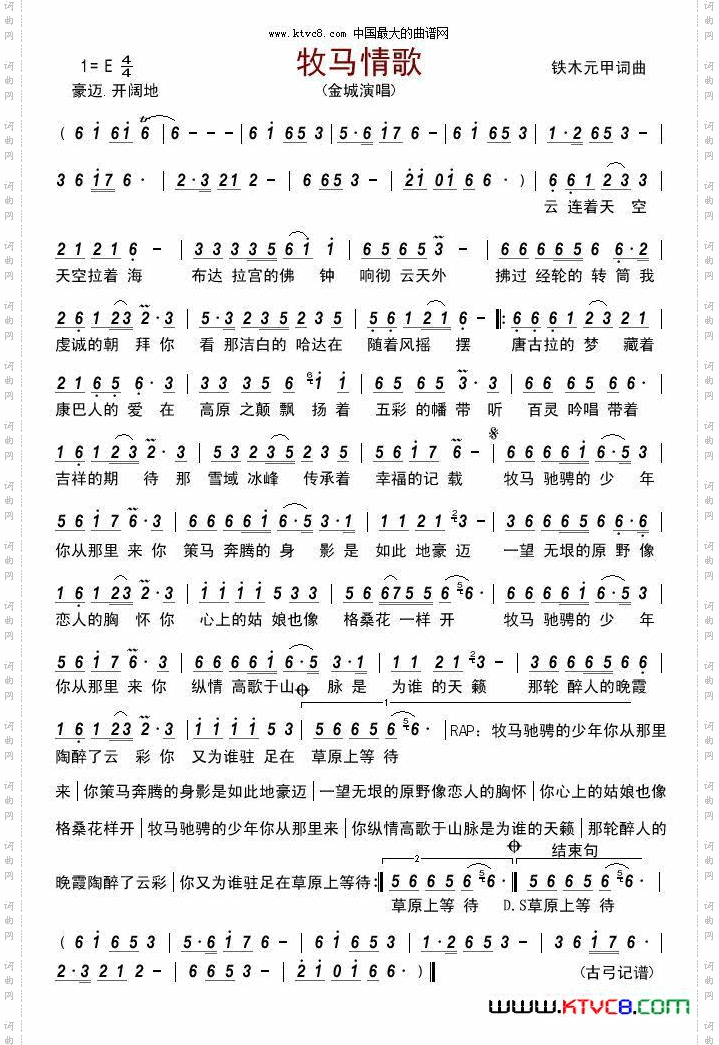 www.ktvc8.com 中国最大的曲谱网
牧马情歌
1=E 4/4
铁木元甲词曲
豪迈.开阔地
(金城演唱)
( 6 1 61 6 | 6 - - - | 61 653 | 5·6 176 - | 61 653 | 1·2 653 |
36 176· | 2·3 212 - | 6 653 - | 21 0166· ) | 66 1233 |
云 连着天 空
21 216 - | 333356 1 1 | 65653 - | 6666656·2 |
天空拉着 海 布达 拉宫的佛 钟 响彻 云天外 拂过 经轮的 转 筒 我
26 1232·3 | 5·3 235 235 | 561 216 - ‖: 6661 23 21 |
虔诚的朝 拜 你 看 那洁白的 哈达在 随着风摇 摆 唐古拉的 梦 藏着
21 656·3 | 335 56 6 1 1 | 65 653·3 | 3356 56 |
康巴人的 爱 在 高原 之颠 飘 扬 着 五彩 的幡 带 听 百灵 吟唱 带着
16 1232·3 | 53 235 235 | 56 176 - | 666616·53 |
吉祥的期 待 那 雪域 冰峰 传承着 幸福的记 载 牧马 驰骋的少 年
56 176·3 | 666616·53·1 | 11 21 2 3 - | 3666566·6 |
你从那里 来 你 策马 奔腾的 身 影 是 如此 地豪 迈 一望 无垠的原 野像
16 1232·3 | 1111533 | 5667556 5 6· | 666616·53 |
恋人的胸 怀 你 心上的姑 娘也像 格桑花 一样 开 牧马 驰骋的少 年
56 176·3 | 666616·5 3·1 | 11 21 2 3 - | 3666566 |
你从那里 来 你 纵情 高歌于山 脉 是 为谁 的天 籁 那轮 醉人的晚霞
1
16 1232·3 | 111153 | 56656 5 6· | RAP: 牧马驰骋的少年你从那里
陶醉了云 彩 你 又为谁驻 足在 草原上等 待
来|你策马奔腾的身影是如此地豪迈|一望无垠的原野像恋人的胸怀|你心上的姑娘也像
格桑花样开|牧马驰骋的少年你从那里来|你纵情高歌于山脉是为谁的天籁|那轮醉人的
2 结束句
晚霞陶醉了云彩|你又为谁驻足在草原上等待:‖ 56656 5 6· ‖ 56656 5 6· |
草原上等 待 D.S草原上等 待
( 61 653 | 5·6 176 - | 61 653 | 1·2 653 | 36 176· |
2·3 212 - | 6 653 - | 21 0166· ) ‖ (古弓记谱)
www.KTVC8.com